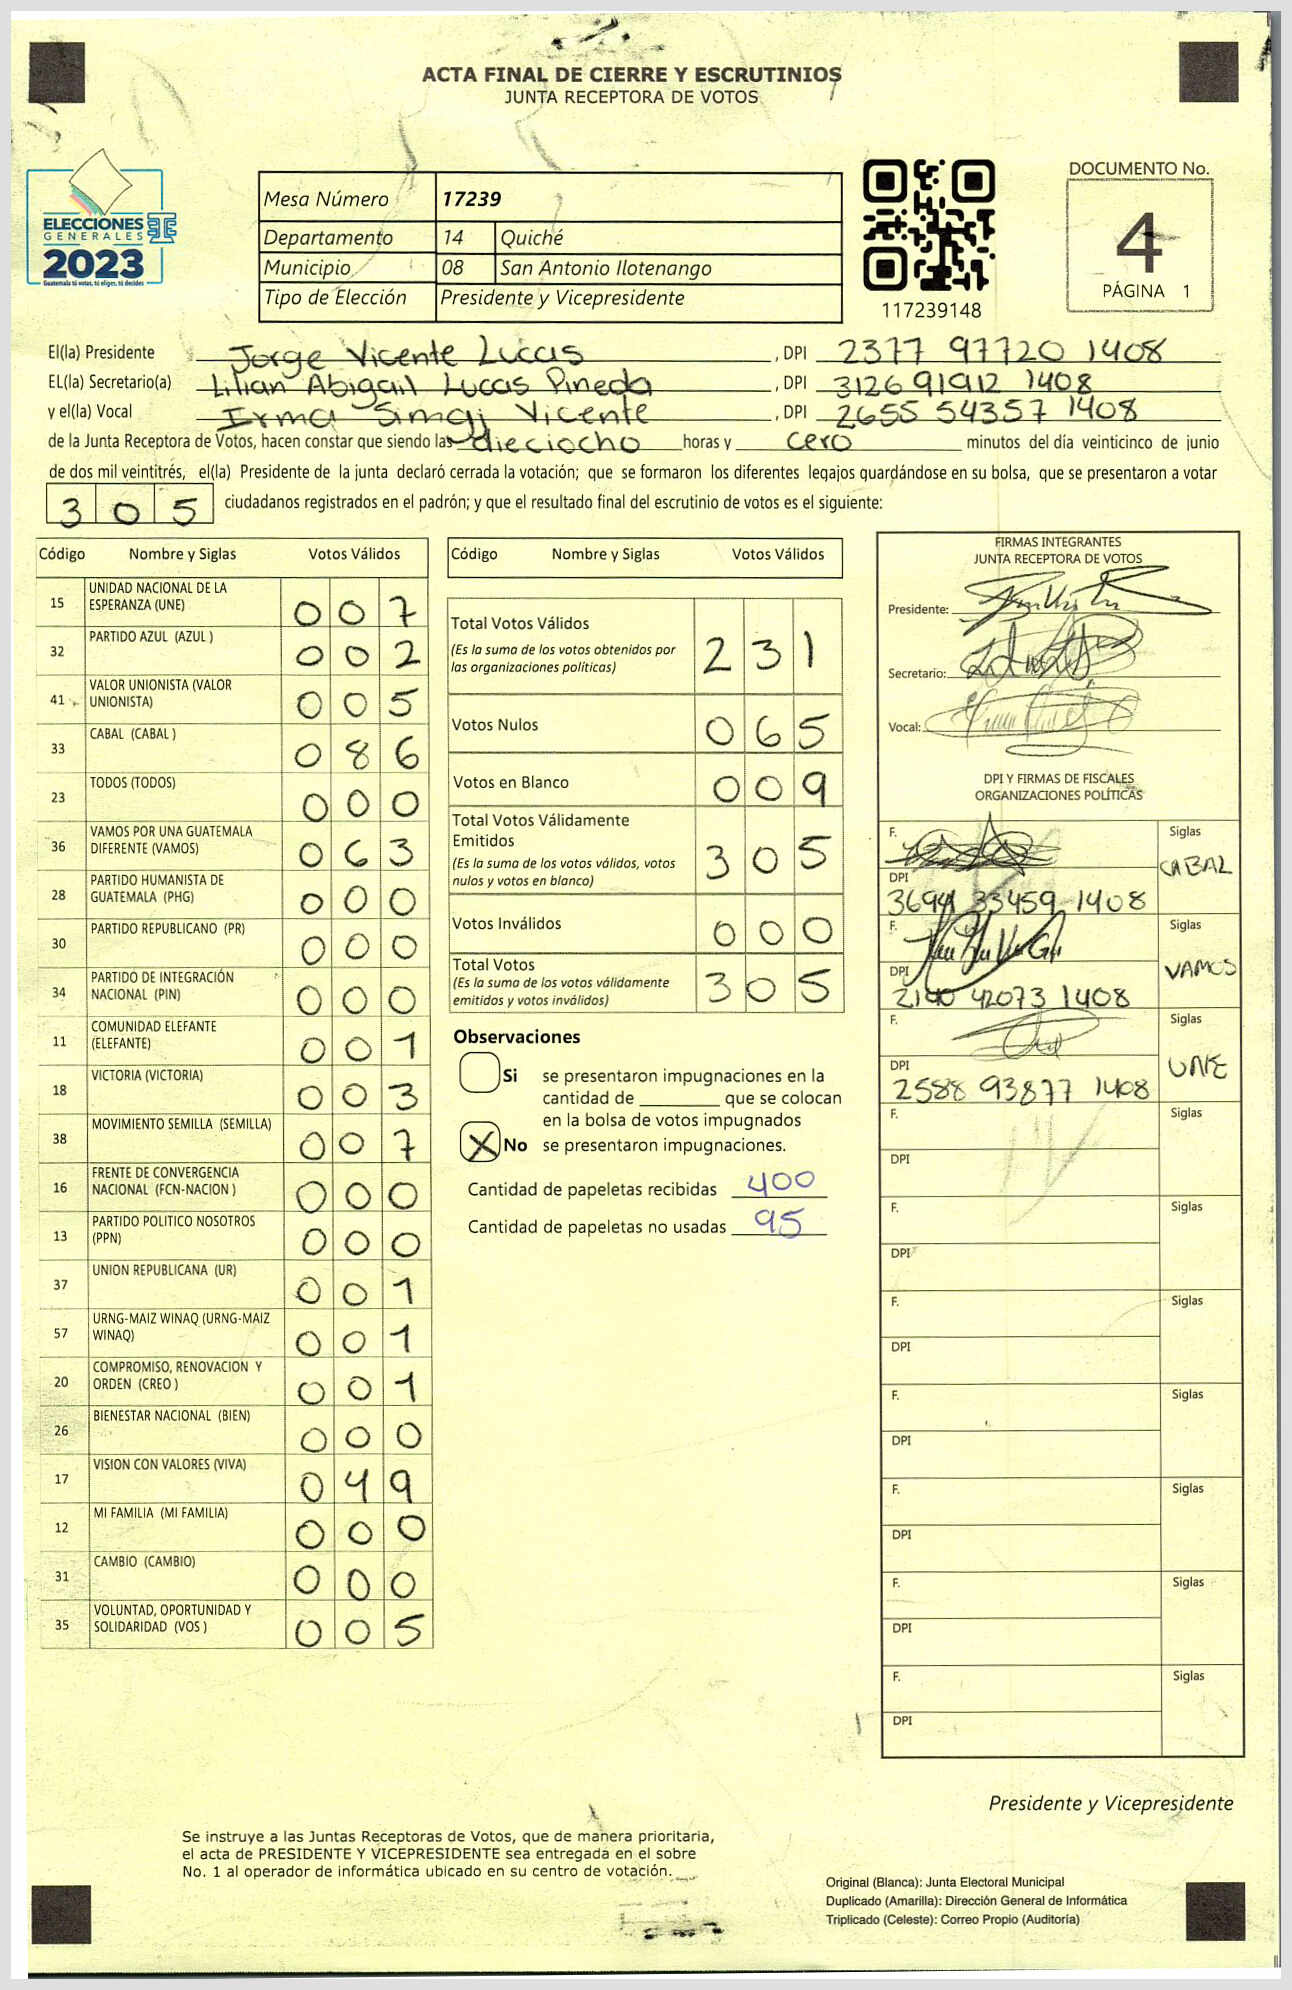 ACTA FINAL DE CIERRE Y ESCRUTINIOS
JUNTA RECEPTORA DE VOTOS
ELECCIONES
GENERALES
2023
Guatemala tú votas, tú eliges, tú decides
Mesa Número 17239
Departamento 14 Quiché
Municipio 08 San Antonio Ilotenango
Tipo de Elección Presidente y Vicepresidente
117239148
DOCUMENTO No.
4
PÁGINA 1
El(la) Presidente Jorge Vicente Lucas , DPI 2377 97720 1408
EL(la) Secretario(a) Lilian Abigail Lucas Pineda , DPI 3126 91912 1408
y el(la) Vocal Irma Simaj Vicente , DPI 2655 54357 1408
de la Junta Receptora de Votos, hacen constar que siendo las dieciocho horas y cero minutos del día veinticinco de junio
de dos mil veintitrés, el(la) Presidente de la junta declaró cerrada la votación; que se formaron los diferentes legajos guardándose en su bolsa, que se presentaron a votar
305 ciudadanos registrados en el padrón; y que el resultado final del escrutinio de votos es el siguiente:
Código Nombre y Siglas Votos Válidos
15 UNIDAD NACIONAL DE LA ESPERANZA (UNE) 007
32 PARTIDO AZUL (AZUL ) 002
41 VALOR UNIONISTA (VALOR UNIONISTA) 005
33 CABAL (CABAL ) 086
23 TODOS (TODOS) 000
36 VAMOS POR UNA GUATEMALA DIFERENTE (VAMOS) 063
28 PARTIDO HUMANISTA DE GUATEMALA (PHG) 000
30 PARTIDO REPUBLICANO (PR) 000
34 PARTIDO DE INTEGRACIÓN NACIONAL (PIN) 000
11 COMUNIDAD ELEFANTE (ELEFANTE) 001
18 VICTORIA (VICTORIA) 003
38 MOVIMIENTO SEMILLA (SEMILLA) 007
16 FRENTE DE CONVERGENCIA NACIONAL (FCN-NACION ) 000
13 PARTIDO POLITICO NOSOTROS (PPN) 000
37 UNION REPUBLICANA (UR) 001
57 URNG-MAIZ WINAQ (URNG-MAIZ WINAQ) 001
20 COMPROMISO, RENOVACION Y ORDEN (CREO ) 001
26 BIENESTAR NACIONAL (BIEN) 000
17 VISION CON VALORES (VIVA) 049
12 MI FAMILIA (MI FAMILIA) 000
31 CAMBIO (CAMBIO) 000
35 VOLUNTAD, OPORTUNIDAD Y SOLIDARIDAD (VOS ) 005
Código Nombre y Siglas Votos Válidos
Total Votos Válidos 231
(Es la suma de los votos obtenidos por
las organizaciones políticas)
Votos Nulos 065
Votos en Blanco 009
Total Votos Válidamente
Emitidos 305
(Es la suma de los votos válidos, votos
nulos y votos en blanco)
Votos Inválidos 000
Total Votos 305
(Es la suma de los votos válidamente
emitidos y votos inválidos)
Observaciones
Si se presentaron impugnaciones en la
cantidad de ________ que se colocan
en la bolsa de votos impugnados
X No se presentaron impugnaciones.
Cantidad de papeletas recibidas 400
Cantidad de papeletas no usadas 95
FIRMAS INTEGRANTES
JUNTA RECEPTORA DE VOTOS
Presidente:
Secretario:
Vocal:
DPI Y FIRMAS DE FISCALES
ORGANIZACIONES POLÍTICAS
F. Siglas CABAL
DPI 3694 33459 1408
F. Siglas VAMOS
DPI 2140 42073 1408
F. Siglas UNE
DPI 2588 93877 1408
F. Siglas
DPI
F. Siglas
DPI
F. Siglas
DPI
F. Siglas
DPI
F. Siglas
DPI
F. Siglas
DPI
F. Siglas
DPI
Presidente y Vicepresidente
Se instruye a las Juntas Receptoras de Votos, que de manera prioritaria,
el acta de PRESIDENTE Y VICEPRESIDENTE sea entregada en el sobre
No. 1 al operador de informática ubicado en su centro de votación.
Original (Blanca): Junta Electoral Municipal
Duplicado (Amarilla): Dirección General de Informática
Triplicado (Celeste): Correo Propio (Auditoría)